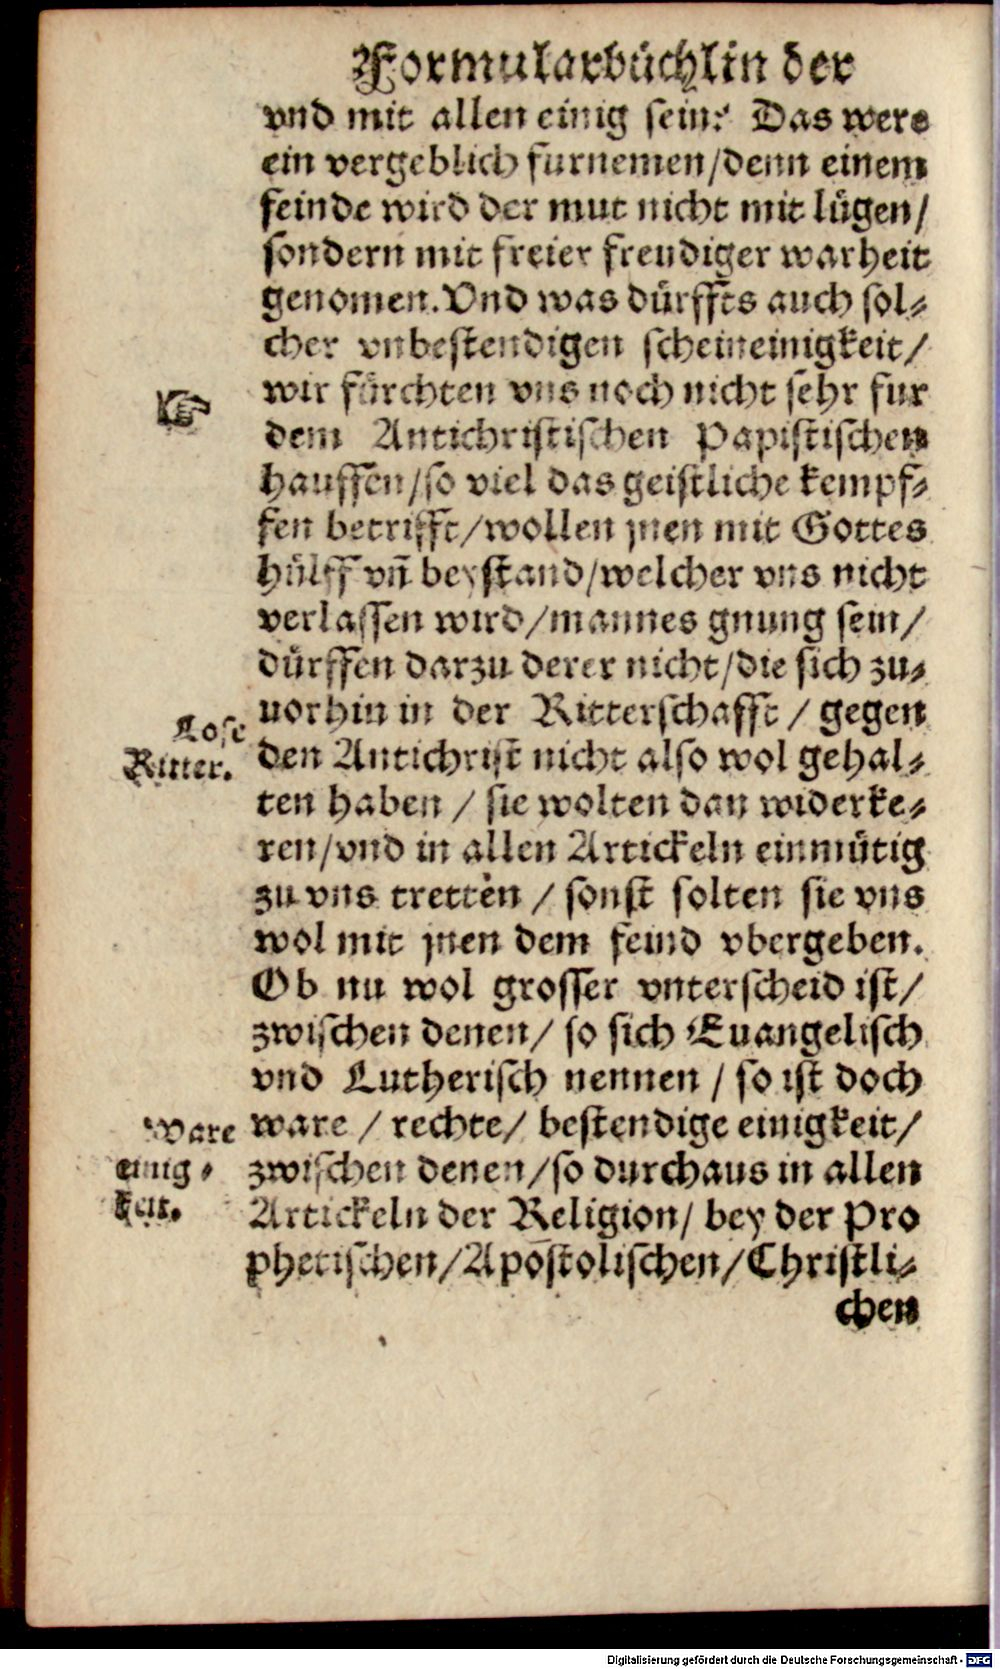 Formularbüchlin der
vnd mit allen einig sein? Das were
ein vergeblich furnemen/denn einem
feinde wird der mut nicht mit lügen/
sondern mit freier freudiger warheit
genomen. Vnd was dürffts auch sol⸗
cher vnbestendigen scheineinigkeit/
wir fürchten vns noch nicht sehr fur
☞
dem Antichristischen Papistischen
hauffen/so viel das geistliche kempf⸗
fen betrifft/wollen jnen mit Gottes
hülff vñ beystand/welcher vns nicht
verlassen wird/mannes gnung sein/
dürffen darzu derer nicht/die sich zu⸗
uorhin in der Ritterschafft / gegen
Lose
Ritter.
den Antichrist nicht also wol gehal⸗
ten haben / sie wolten dan widerke⸗
ren/vnd in allen Artickeln einmütig
zu vns tretten / sonst solten sie vns
wol mit jnen dem feind vbergeben.
Ob nu wol grosser vnterscheid ist/
zwischen denen/ so sich Euangelisch
vnd Lutherisch nennen / so ist doch
Ware
einig⸗
keit.
ware / rechte/ bestendige einigkeit/
zwischen denen/so durchaus in allen
Artickeln der Religion/ bey der Pro
phetischen/Apostolischen/Christli⸗
chen
Digitalisierung gefördert durch die Deutsche Forschungsgemeinschaft - DFG